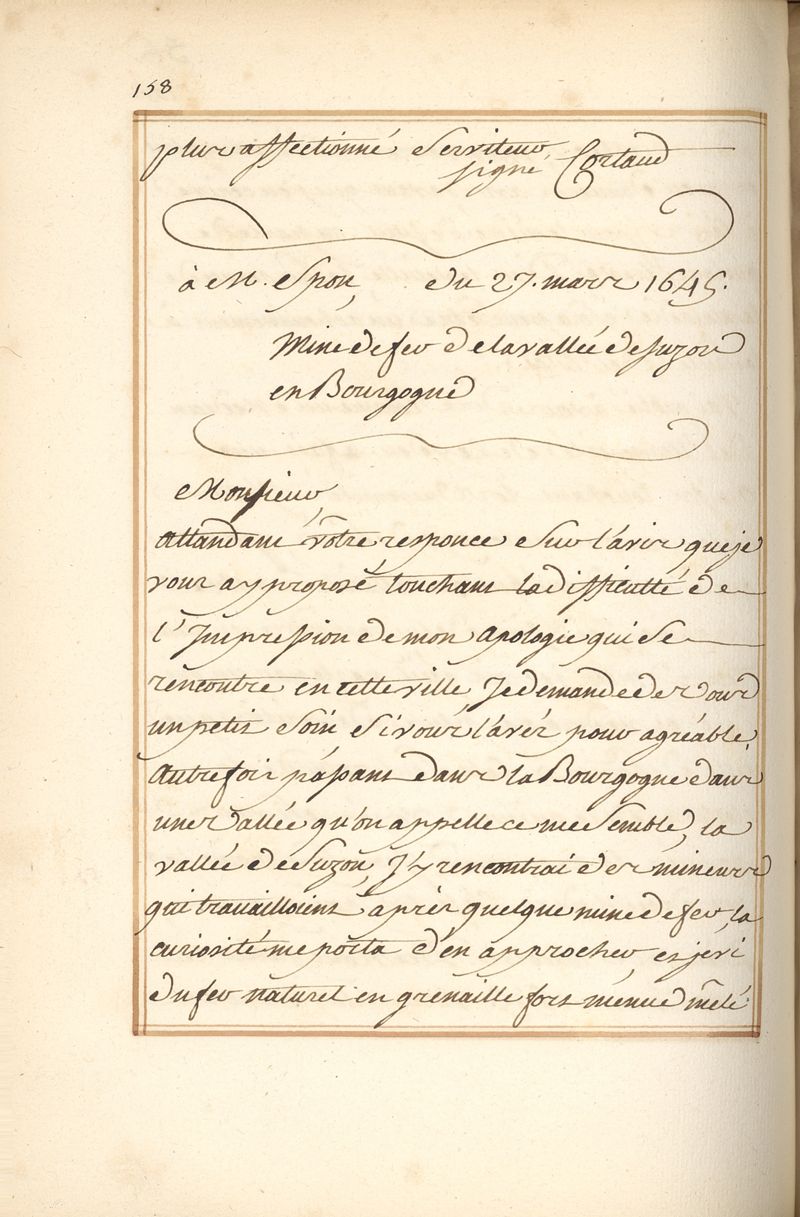 158
plus affectionné Serviteur
signé Cortaud
à M. Spon, du 27. mars 1645.
Mine de fer de la vallée de Suzon
en Bourgogne
Monsieur,
attandant vôtre responce Sur l'avis que je
vous ay proposé touchant la difficulté de
l'Impression de mon apologie qui Se
rencontre en cette ville Je demande de vous
un petit Soin Si vous l'avéz pour agréable,
autrefois passant dans la Bourgogne dans
une vallée qu'on appelle ce me Semble, la
vallée de Suzon, J'y rencontrai des mineurs
qui travailloient aprés quelque mine de fer, la
curiosité me porta d'en approcher, et je vi
du fer naturel en grenaille fort ménue mêlé